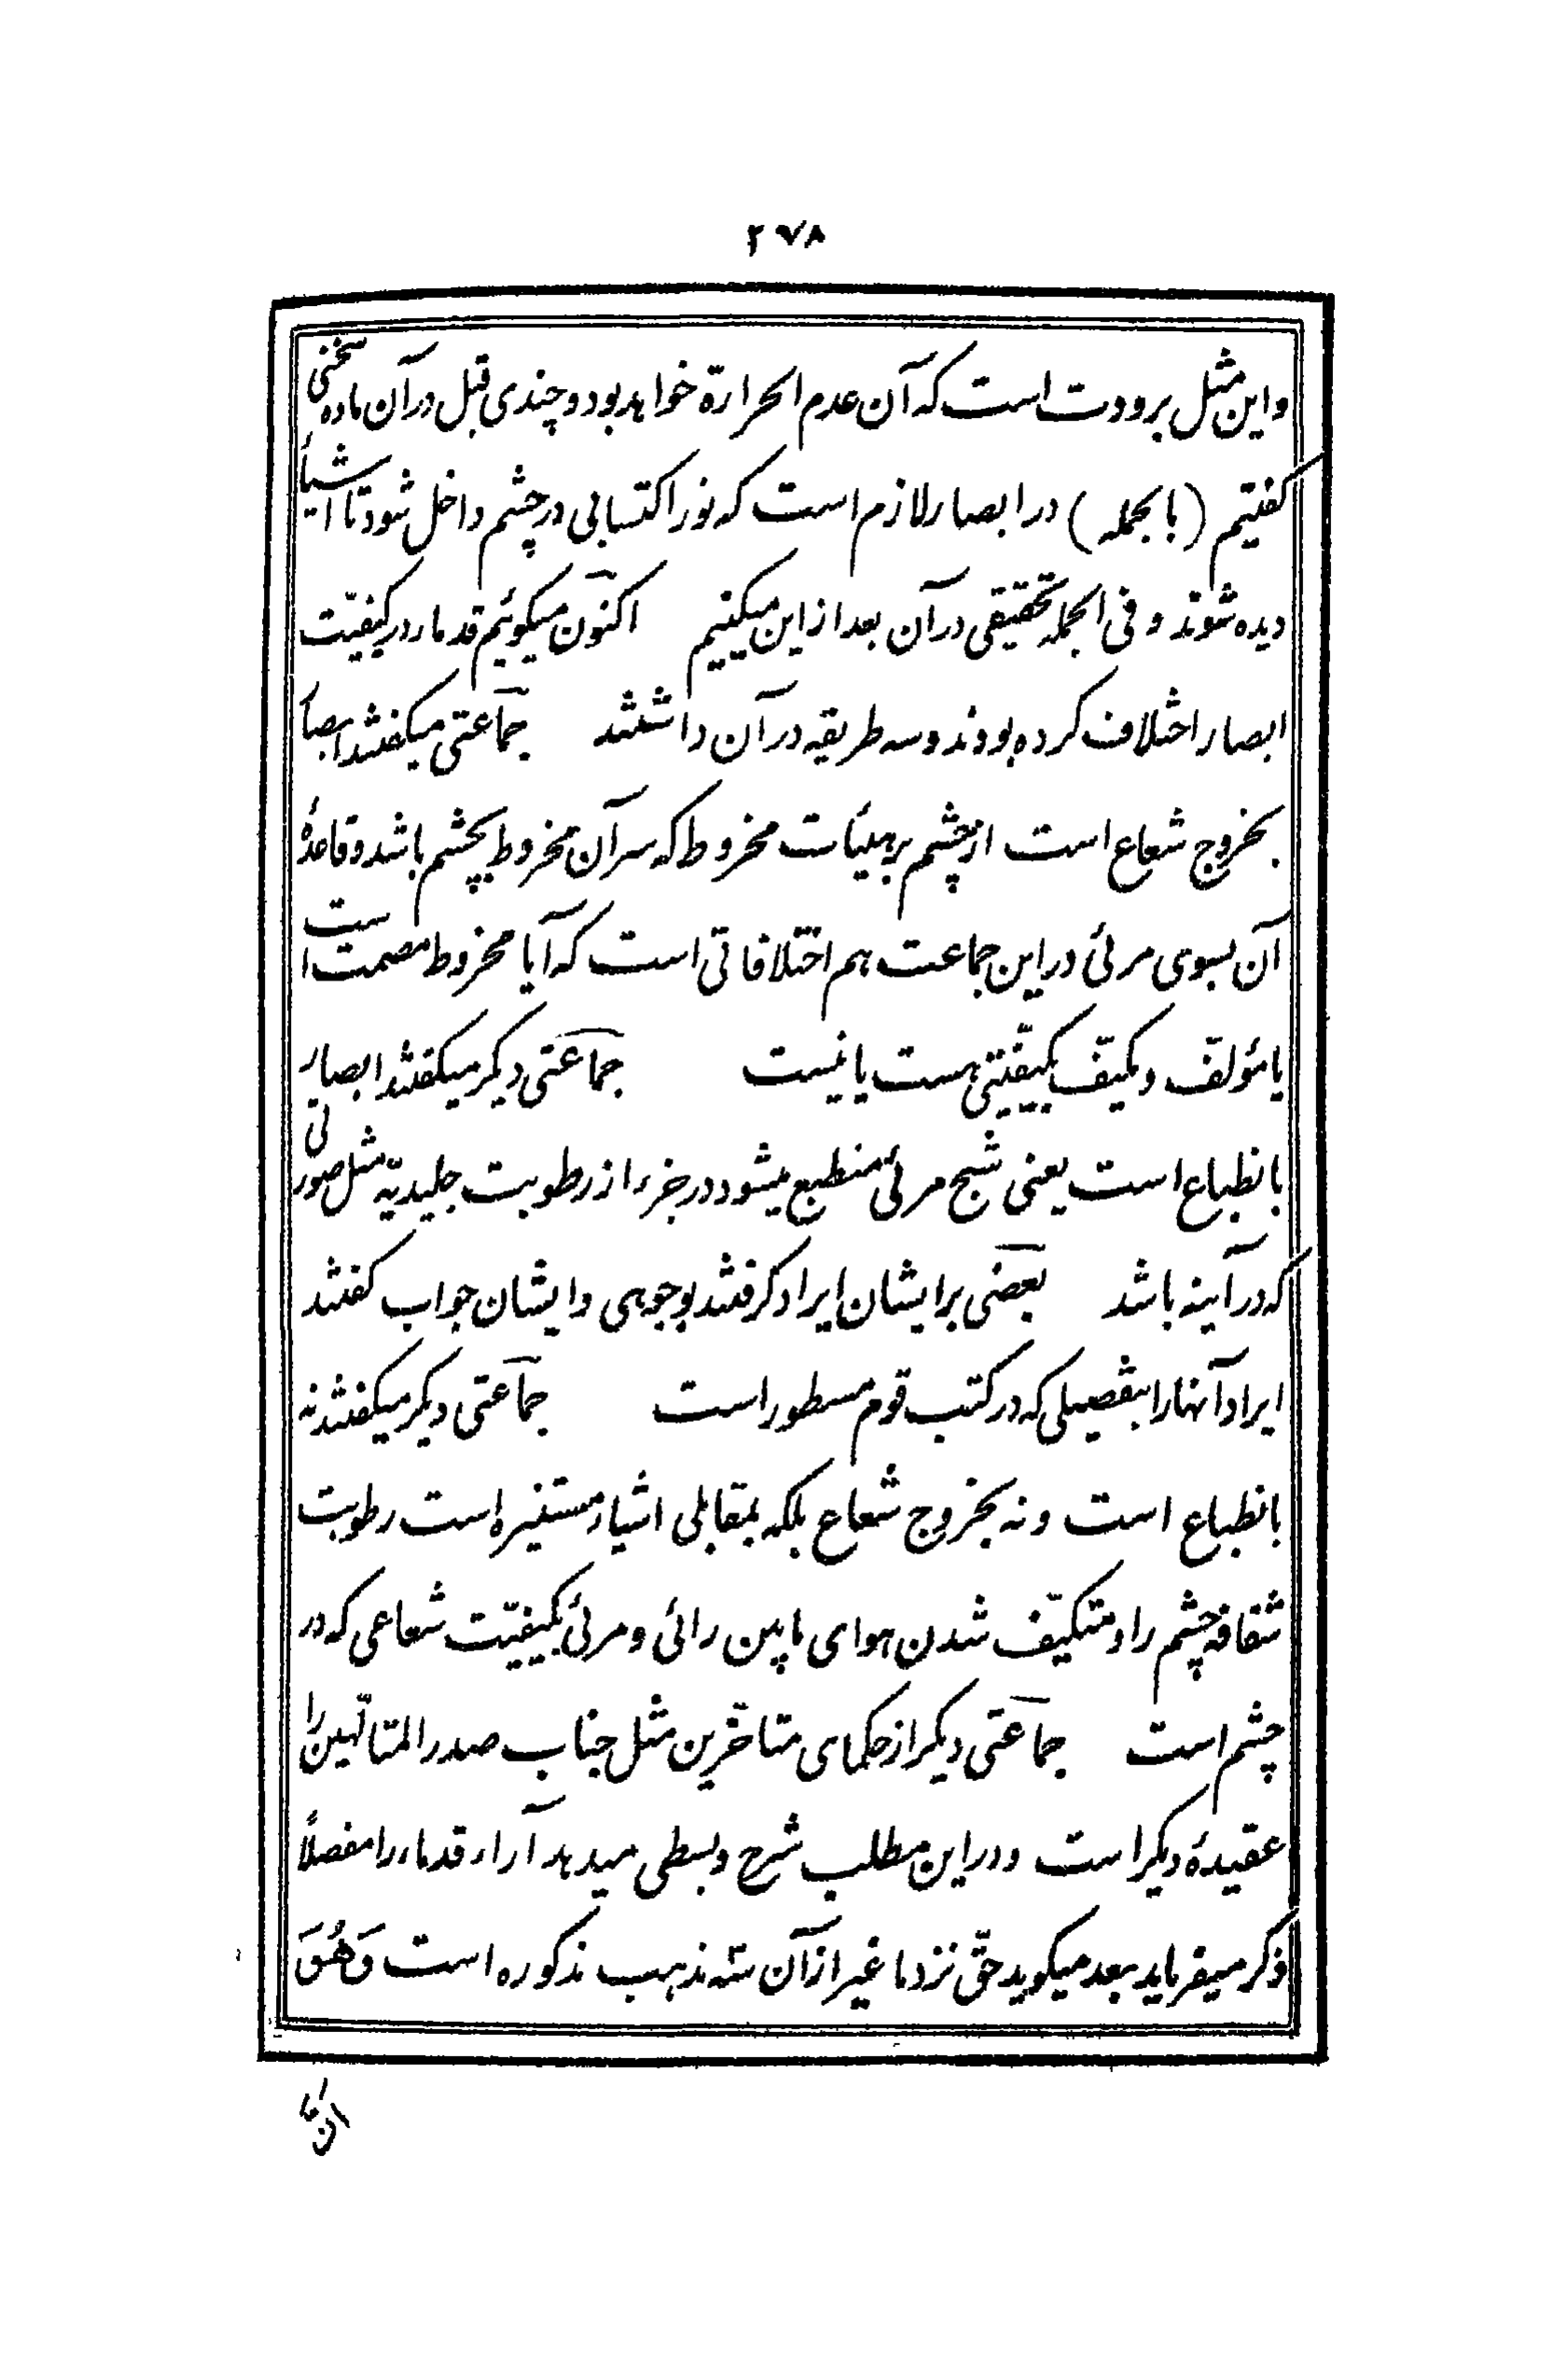 ۲۷۸
و این مثل برودت است که آن عدم الحرارة خواهد بود و چندی قبل در آن ماده سخنی
کفتیم (بالجمله) در ابصار لازم است که نور اکتسابی در چشم داخل شود تا اشیأ
دیده شوند و فی الجمله تحقیقی در آن بعد از این میکنیم اکنون میکوئیم قدماء در کیفیّت
ابصار اختلاف کرده بودند و سه طریقه در آن داشتند جماعتی میکفتند ابصا
بخروج شعاع است از چشم بر هیئات مخروط که سر آن مخروط بچشم باشد و قاعدهٔ
آن بسوی مرئی در این جماعت هم اختلافاتی است که آیا مخروط مصمت است
یا مؤلّف و مکیّف بکیفّیتی هست یا نیست جماعتی دیکر میکفتند ابصار
بانطباع است یعنی شبح مرئی منطبع میشود در جزء از رطوبت جلیدیّه مثل صورتی
که در آینه باشد بعضی بر ایشان ایراد کرفتند بوجوهی و ایشان جواب کفتند
ایراد آنها را بتفصیلی که در کتب قوم مسطور است جماعتی دیکر میکفتند نه
بانطباع است و نه بخروج شعاع بلکه بمقابلی اشیاء مستنیره است رطوبت
شفافه چشم را و متکیّف شدن هوای ما بین رائی و مرئی بکیفیّت شعاعی که در
چشم است جماعتی دیکر از حکمای متاخّرین مثل جناب صدر المتالّهین را
عقیدهٔ دیکر است و در این مطلب شرح و بسطی میدهد آراء قدماء را مفصلاً
ذکر میفرماید بعد میکوید حقّ نزد ما غیر از آن سه مذهب مذکوره است وَهُوَ